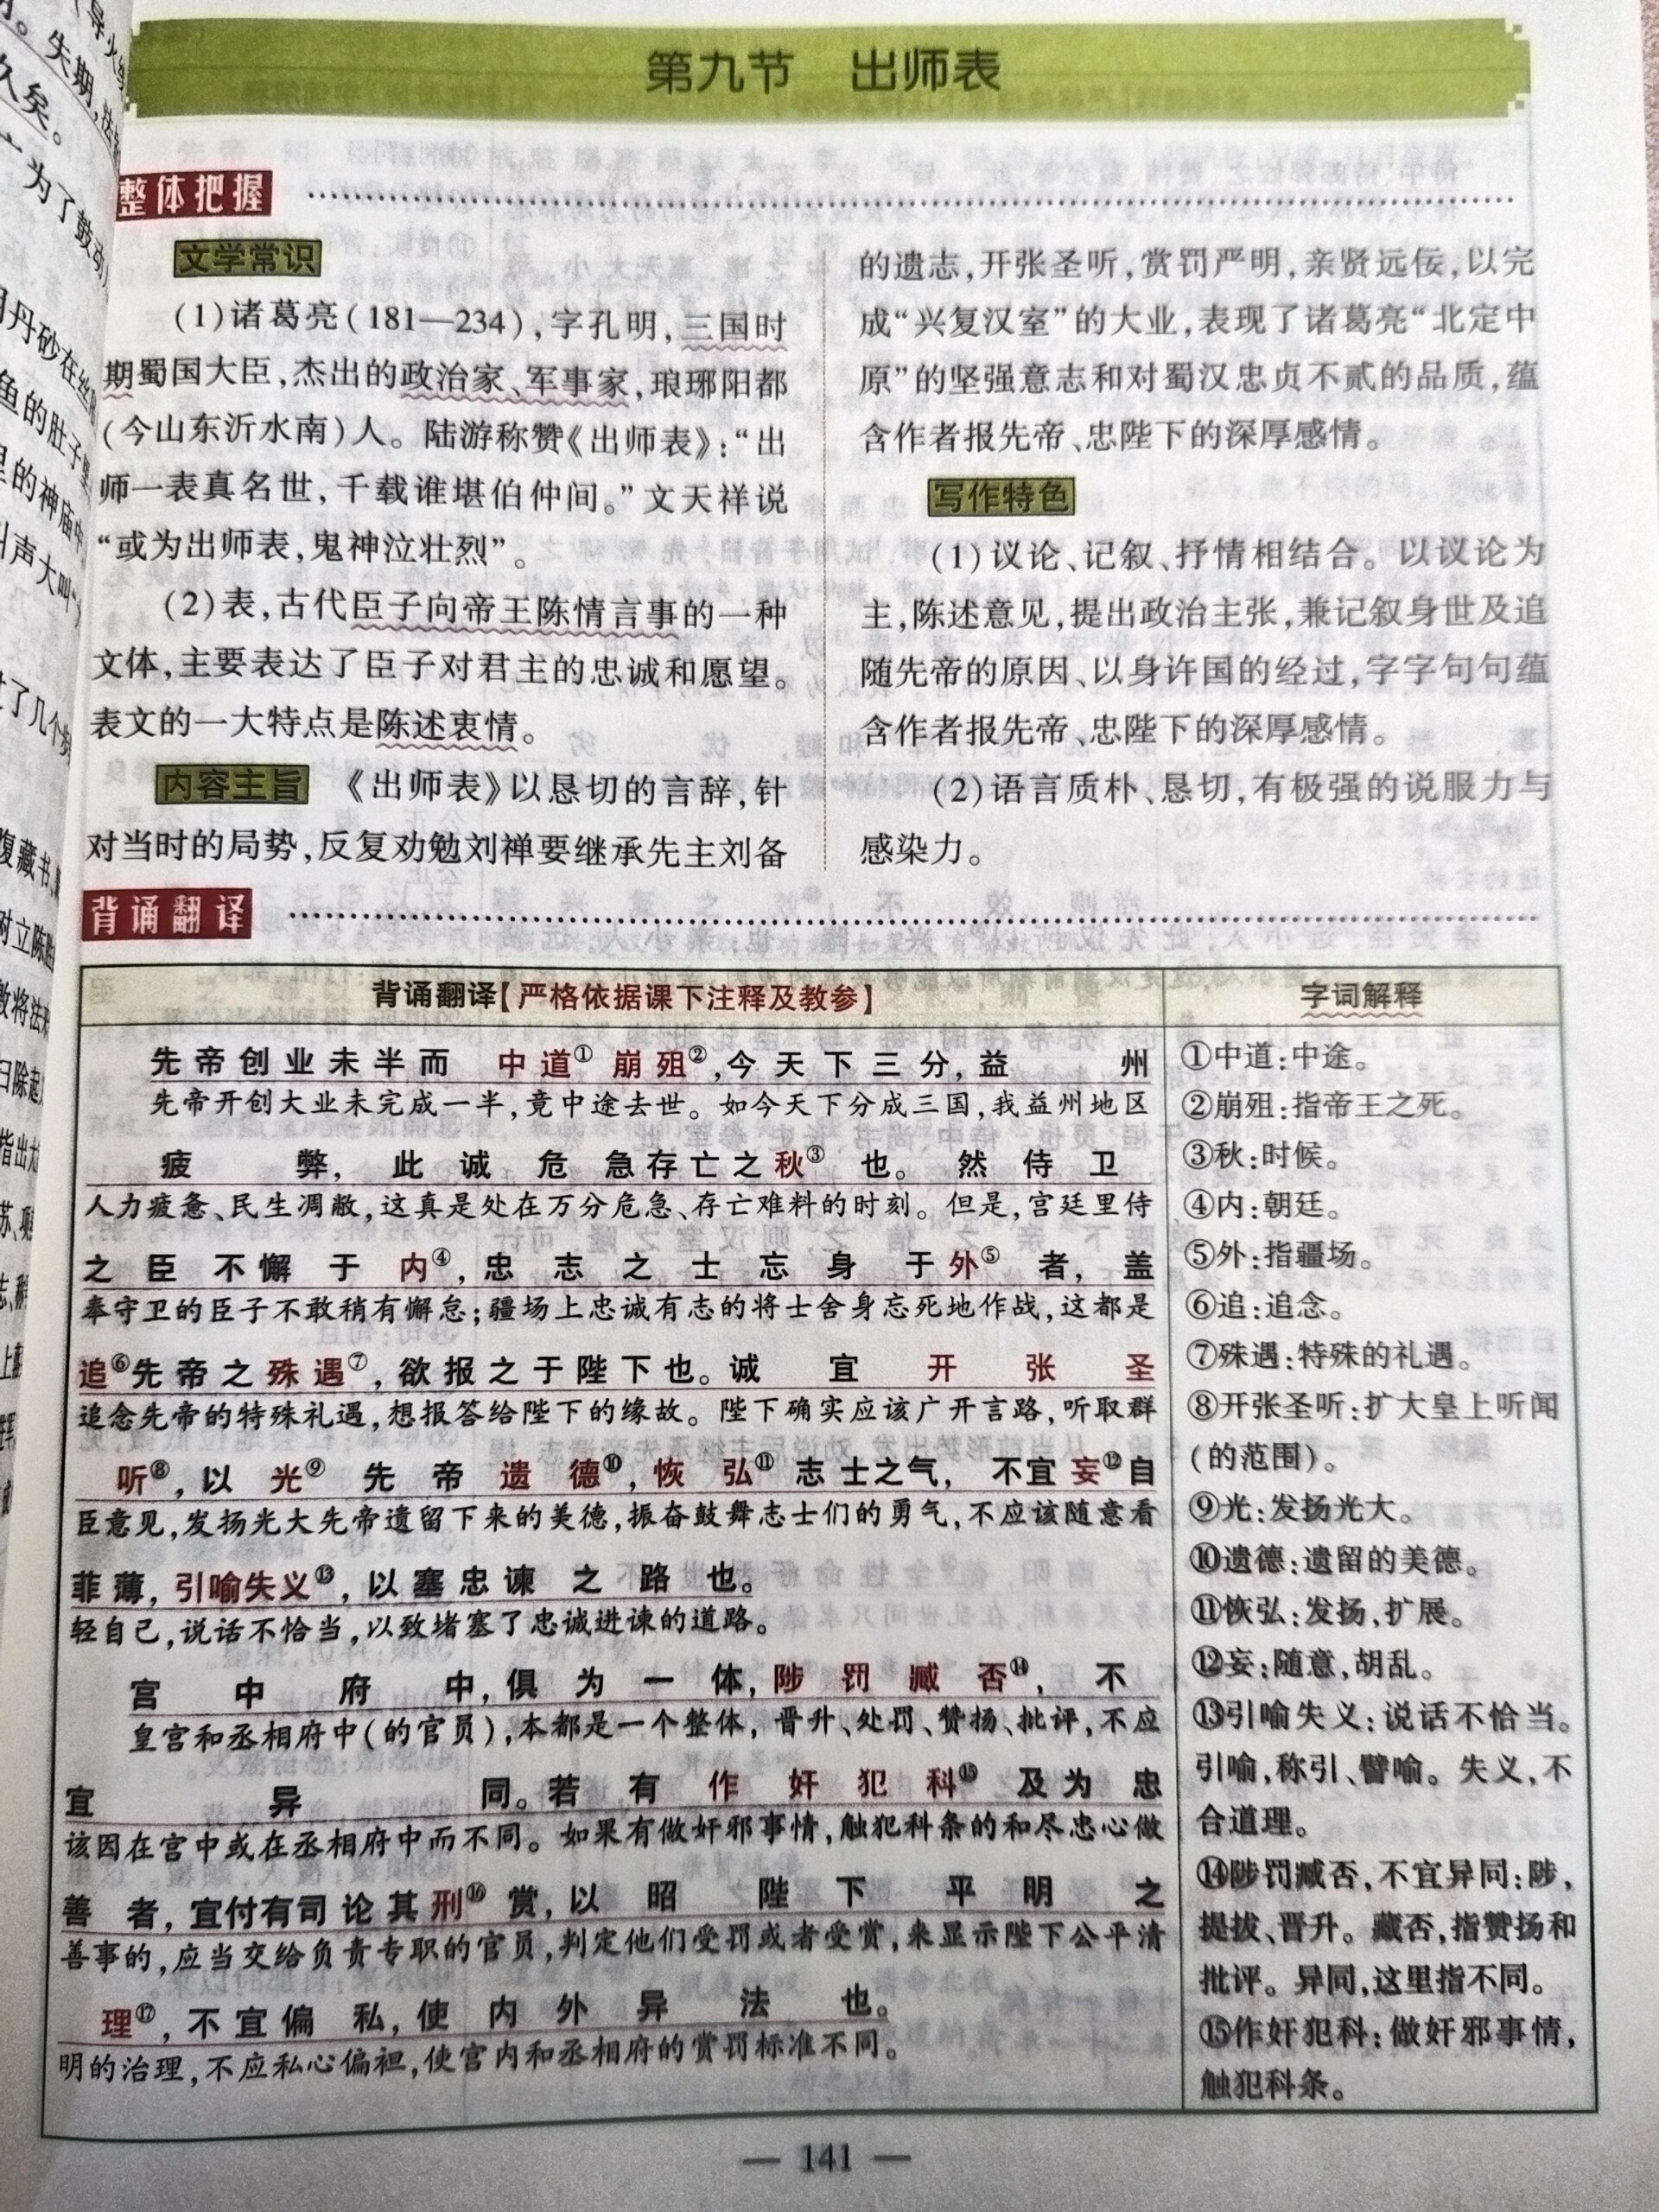 第九节 出师表
整体把握
文学常识
(1)诸葛亮(181—234),字孔明,三国时
期蜀国大臣,杰出的政治家、军事家,琅琊阳都
(今山东沂水南)人。陆游称赞《出师表》:“出
师一表真名世,千载谁堪伯仲间。”文天祥说
“或为出师表,鬼神泣壮烈”。
(2)表,古代臣子向帝王陈情言事的一种
文体,主要表达了臣子对君主的忠诚和愿望。
表文的一大特点是陈述衷情。
内容主旨 《出师表》以恳切的言辞,针
对当时的局势,反复劝勉刘禅要继承先主刘备
的遗志,开张圣听,赏罚严明,亲贤远佞,以完
成“兴复汉室”的大业,表现了诸葛亮“北定中
原”的坚强意志和对蜀汉忠贞不贰的品质,蕴
含作者报先帝、忠陛下的深厚感情。
写作特色
(1)议论、记叙、抒情相结合。以议论为
主,陈述意见,提出政治主张,兼记叙身世及追
随先帝的原因、以身许国的经过,字字句句蕴
含作者报先帝、忠陛下的深厚感情。
(2)语言质朴、恳切,有极强的说服力与
感染力。
背诵翻译
背诵翻译【严格依据课下注释及教参】
先帝创业未半而 中道① 崩殂②,今天下三分,益 州
先帝开创大业未完成一半,竟中途去世。如今天下分成三国,我益州地区
疲 弊,此诚危急存亡之秋③也。然侍卫
人力疲惫、民生凋敝,这真是处在万分危急、存亡难料的时刻。但是,宫廷里侍
之臣不懈于内④,忠志之士忘身于外⑤者,盖
奉守卫的臣子不敢稍有懈怠;疆场上忠诚有志的将士舍身忘死地作战,这都是
追⑥先帝之殊遇⑦,欲报之于陛下也。诚宜开张圣
追念先帝的特殊礼遇,想报答给陛下的缘故。陛下确实应该广开言路,听取群
听⑧,以光⑨先帝遗德⑩,恢弘⑪志士之气,不宜妄⑫自
臣意见,发扬光大先帝遗留下来的美德,振奋鼓舞志士们的勇气,不应该随意看
菲薄,引喻失义⑬,以塞忠谏之路也。
轻自己,说话不恰当,以致堵塞了忠诚进谏的道路。
宫中府中,俱为一体,陟罚臧否⑭,不
皇宫和丞相府中(的官员),本都是一个整体,晋升、处罚、赞扬、批评,不应
宜异同。若有作奸犯科⑮及为忠
该因在宫中或在丞相府中而不同。如果有做奸邪事情,触犯科条的和尽忠心做
善者,宜付有司论其刑⑯赏,以昭陛下平明之
善事的,应当交给负责专职的官员,判定他们受罚或者受赏,来显示陛下公平清
理⑰,不宜偏私,使内外异法也。
明的治理,不应私心偏袒,使宫内和丞相府的赏罚标准不同。
字词解释
①中道:中途。
②崩殂:指帝王之死。
③秋:时候。
④内:朝廷。
⑤外:指疆场。
⑥追:追念。
⑦殊遇:特殊的礼遇。
⑧开张圣听:扩大皇上听闻
(的范围)。
⑨光:发扬光大。
⑩遗德:遗留的美德。
⑪恢弘:发扬,扩展。
⑫妄:随意,胡乱。
⑬引喻失义:说话不恰当。
引喻,称引、譬喻。失义,不
合道理。
⑭陟罚臧否,不宜异同:陟,
提拔、晋升。藏否,指赞扬和
批评。异同,这里指不同。
⑮作奸犯科:做奸邪事情,
触犯科条。
— 141 —